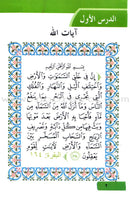 الدرس الأول
آيات الله
بسم الله الرحمن الرحيم
إِنَّ فِي خَلْقِ السَّمَوَاتِ وَالْأَرْضِ
وَاخْتِلَافِ اللَّيْلِ وَالنَّهَارِ وَالْفُلْكِ
الَّتِي تَجْرِي فِي الْبَحْرِ بِمَا يَنْفَعُ
النَّاسَ وَمَا أَنْزَلَ اللَّهُ مِنَ السَّمَاءِ
مِنْ مَاءٍ فَأَحْيَا بِهِ الْأَرْضَ بَعْدَ مَوْتِهَا
وَبَثَّ فِيهَا مِنْ كُلِّ دَابَّةٍ وَتَصْرِيفِ
الرِّيَاحِ وَالسَّحَابِ الْمُسَخَّرِ بَيْنَ
السَّمَاءِ وَالْأَرْضِ لَآيَاتٍ لِقَوْمٍ
يَعْقِلُونَ ﴿١٦٤﴾ البقرة: ١٦٤